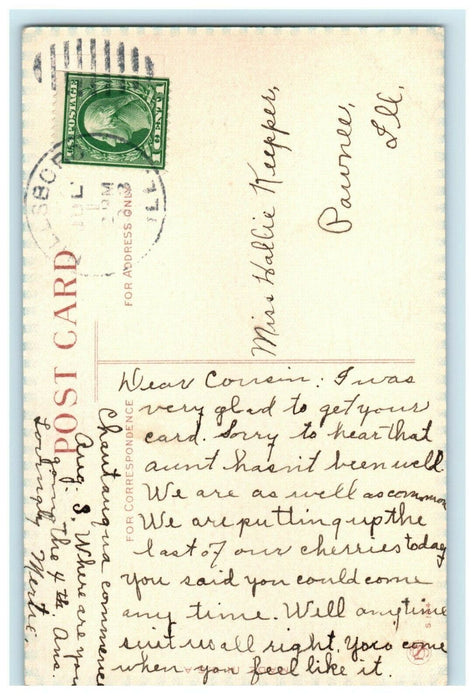 POST CARD
FOR ADDRESS ONLY
FOR CORRESPONDENCE
U.S. POSTAGE
1 CENT 1
LSBOR
JUL
1
PM
ILL.
Miss Hallie Kepper,
Pawnee,
Ill.
Dear Cousin: I was
very glad to get your
card. Sorry to hear that
aunt hasn't been well.
We are as well as common
We are putting up the
last of our cherries today
you said you could come
any time. Well anytime
suit us all right. You come
when you feel like it.
Chautauqua commences
Aug. 3. Where are you
going the 4th Ans.
Lovingly Mertie.